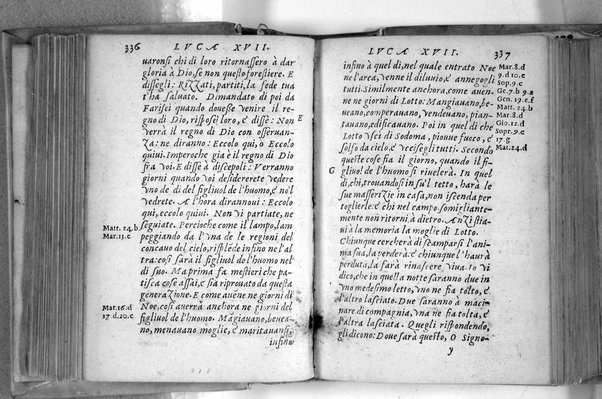 336 LVCA XVII.
uaronsi chi di loro ritornassero à dar
gloria à Dio, se non questo forestiere. E
dissegli: Rizzati, partiti, la fede tua
t'ha saluato. Dimandato di poi da
Farisei quando douesse venire il re
gno di Dio, rispose loro, e disse: Non
verrà il regno di Dio con osseruan
za: ne diranno: Eccolo qui, o Eccolo
quiui. Imperoche già è il regno di Dio
fra voi. E disse à discepoli: Verranno
giorni quando voi desidererete vedere
vno de di del figliuol de l'huomo, e nol
vedrete. A l'hora dirannoui: Eccolo
qui, eccolo quiui. Non vi partiate, ne
seguiate. Percioche come il lampo, lam
peggiando da l'vna de le regioni del
concauo del cielo, risplede infino ne l'al
tra: così sarà il figliuol de l'huomo nel
di suo. Ma prima fa mestieri che pa-
tisca cose assai, e sia riprouato da questa
generazione. E come auëne ne giorni di
Noe, così auerrà anchora ne giorni del
figliuol de l'huomo. Mägiauano, beuea-
no, menauano moglie, e maritauansi,
infino
E
Matt. 24. b
Mar. 13. c
Mat. 16. d
17 d. 20. c
LVCA XVII. 337
infino à quel di, nel quale entrato Noe
ne l'arca, venne il diluuio, e annegogli
tutti. Similmente anchora, come auen-
ne ne giorni di Lotto: Mangiauano, be-
ueano, comperauano, vendeuano, pian-
tauano, edificauano. Poi in quel di che
Lotto vsci di Sodoma, piouue fuoco, e
solfo da cielo, e vccisegli tutti. Secondo
queste cose fia il giorno, quando il fi-
gliuol de l'huomo si riuelerà. In quel
di, chi, trouandosi in sù'l tetto, harà le
sue masserizie in casa, non iscenda per
toglierle: e chi nel campo, somigliante-
mente non ritorni à dietro. Anzi stia-
ui à la memoria la moglie di Lotto.
Chiunque cercherà di scamparsi l'ani-
ma sua, la perderà: e chiunque l'haurà
perduta, la farà rinascere viua. Io vi
dico, che in quella notte saranno due in
vno medesimo letto, vno ne fia tolto, e
l'altro lasciato. Due saranno à maci-
nare di compagnia, vna ne fia tolta, e
l'altra lasciata. Quegli rispondendo,
gli dicono: Doue sarà questo, O Signo-
y
G
Mar. 8. d
9. d 10. c
Sop. 9. c
Ge. 7. b 9. a
Gen. 19. c. f
Matt. 24. b
Mar. 8. d
Gio. 12. d
Sopr. 9. c
17. g
Mat. 24. d